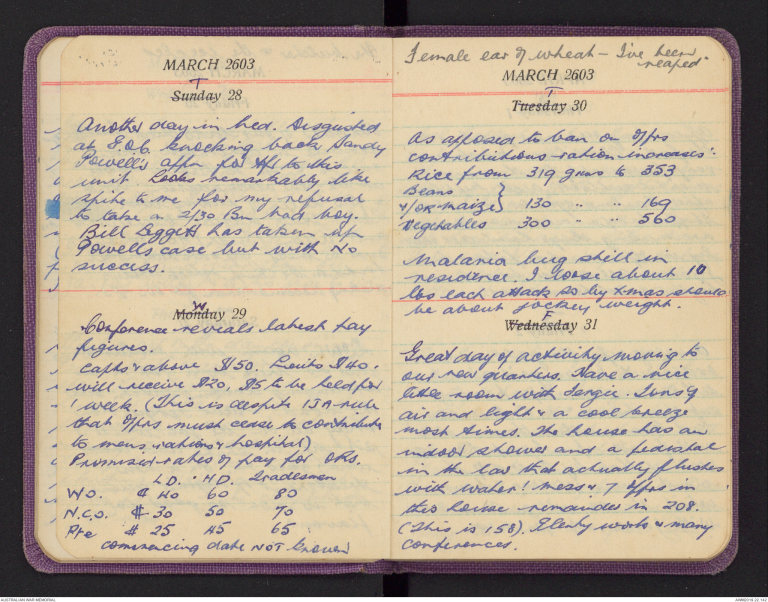 MARCH 2603
T
Sunday 28
Another day in bed. Disgusted
at E.O.b. knocking back Sandy
Powell's appn for tfr to this
unit. Looks remarkably like
spite to me for my refusal
to take on 2/30 Bn had boy.
Bill Leggett has taken up
Powells case but with no
success.
W
Monday 29
Conference reveals latest pay
figures.
Capts & above $150. Lieuts $40.
will receive $20, $5 to be held for
1 week. (This is despite IJA rule
that offrs must cease to contribute
to mens rations & hospital)
Promised rates of pay for ORs.
L.D. H.D. Tradesmen
W.O. $ 40 60 80
N.C.O. $ 30 50 70
Pte $ 25 45 65
commencing date NOT known
Female ear of wheat - I've been
reaped.
MARCH 2603
T
Tuesday 30
As opposed to ban on offrs
contributions ration increases:
Rice from 319 gms to 353
Beans
&/or maize } 130 " " 169
Vegetables 300 " " 560
Malaria bug still in
residence. I loose about 10
lbs each attack so by Xmas should
be about jockey weight.
F
Wednesday 31
Great day of activity moving to
our new quarters. Have a nice
little room with Fergie. Tons of
air and light & a cool breeze
most times. The house has an
indoor shower and a pedestal
in the lav that actually flushes
with water! Mess & 7 offrs in
this house remainder in 208.
(This is 158). Plenty work & many
conferences.
AUSTRALIAN WAR MEMORIAL